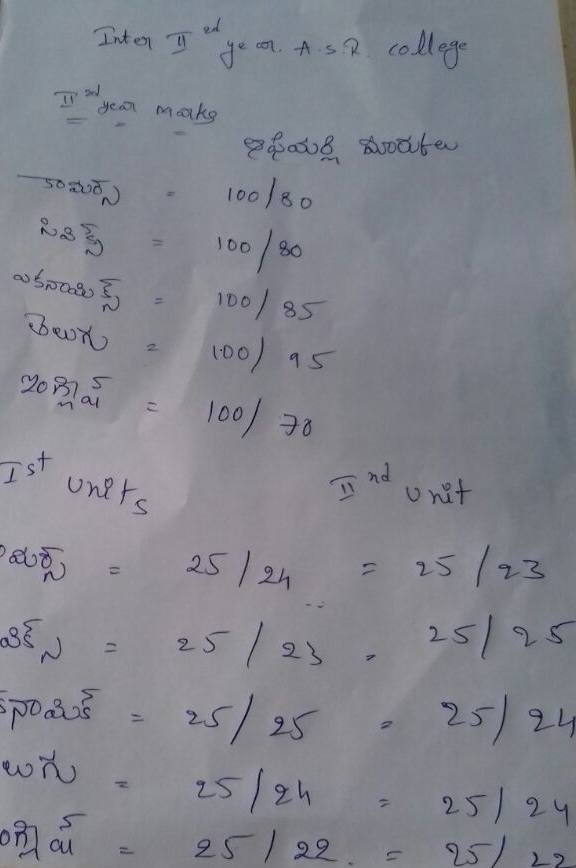 Inter II nd year. A.S.R. college
II nd year marks
మారుకులు
కామర్స్ = 100/80
సివిక్స్ = 100/80
ఎకనామిక్స్ = 100/85
తెలుగు = 100/ 95
ఇంగ్లిష్ = 100/ 70
Ist Units II nd Unit
మర్స్ = 25/24 = 25/23
విక్స్ = 25/23 = 25/25
కనామిక్ = 25/25 = 25/24
లుగు = 25/24 = 25/24
ంగ్లిష్ = 25/22. = 25/22